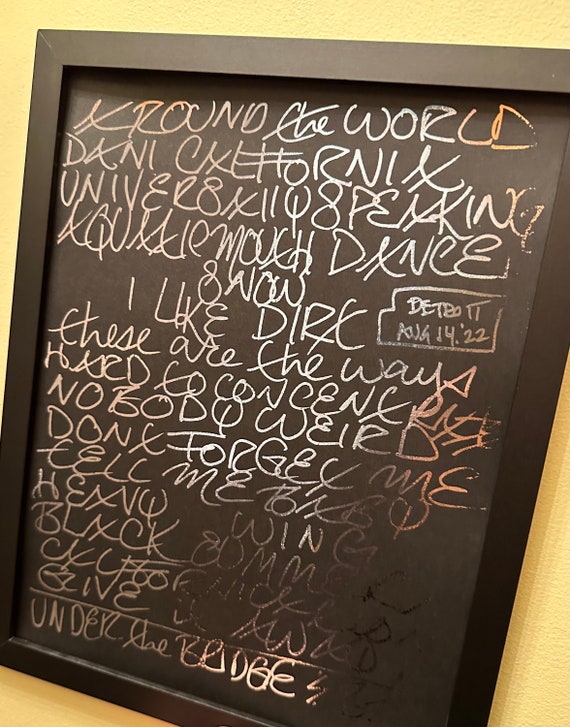 AROUND the WORLD
DANI CALIFORNIA
UNIVERSALLY SPEAKING
AQUATIC MOUTH DANCE
SNOW
I LIKE DIRT
DETROIT
AUG 14.'22
these are the ways
HARD to CONCENTRATE
NOBODY WEIRD
DONT FORGET ME
TELL ME BABY
HEAVY WING
BLACK SUMMER
GIVE IT AWAY
UNDER the BRIDGE